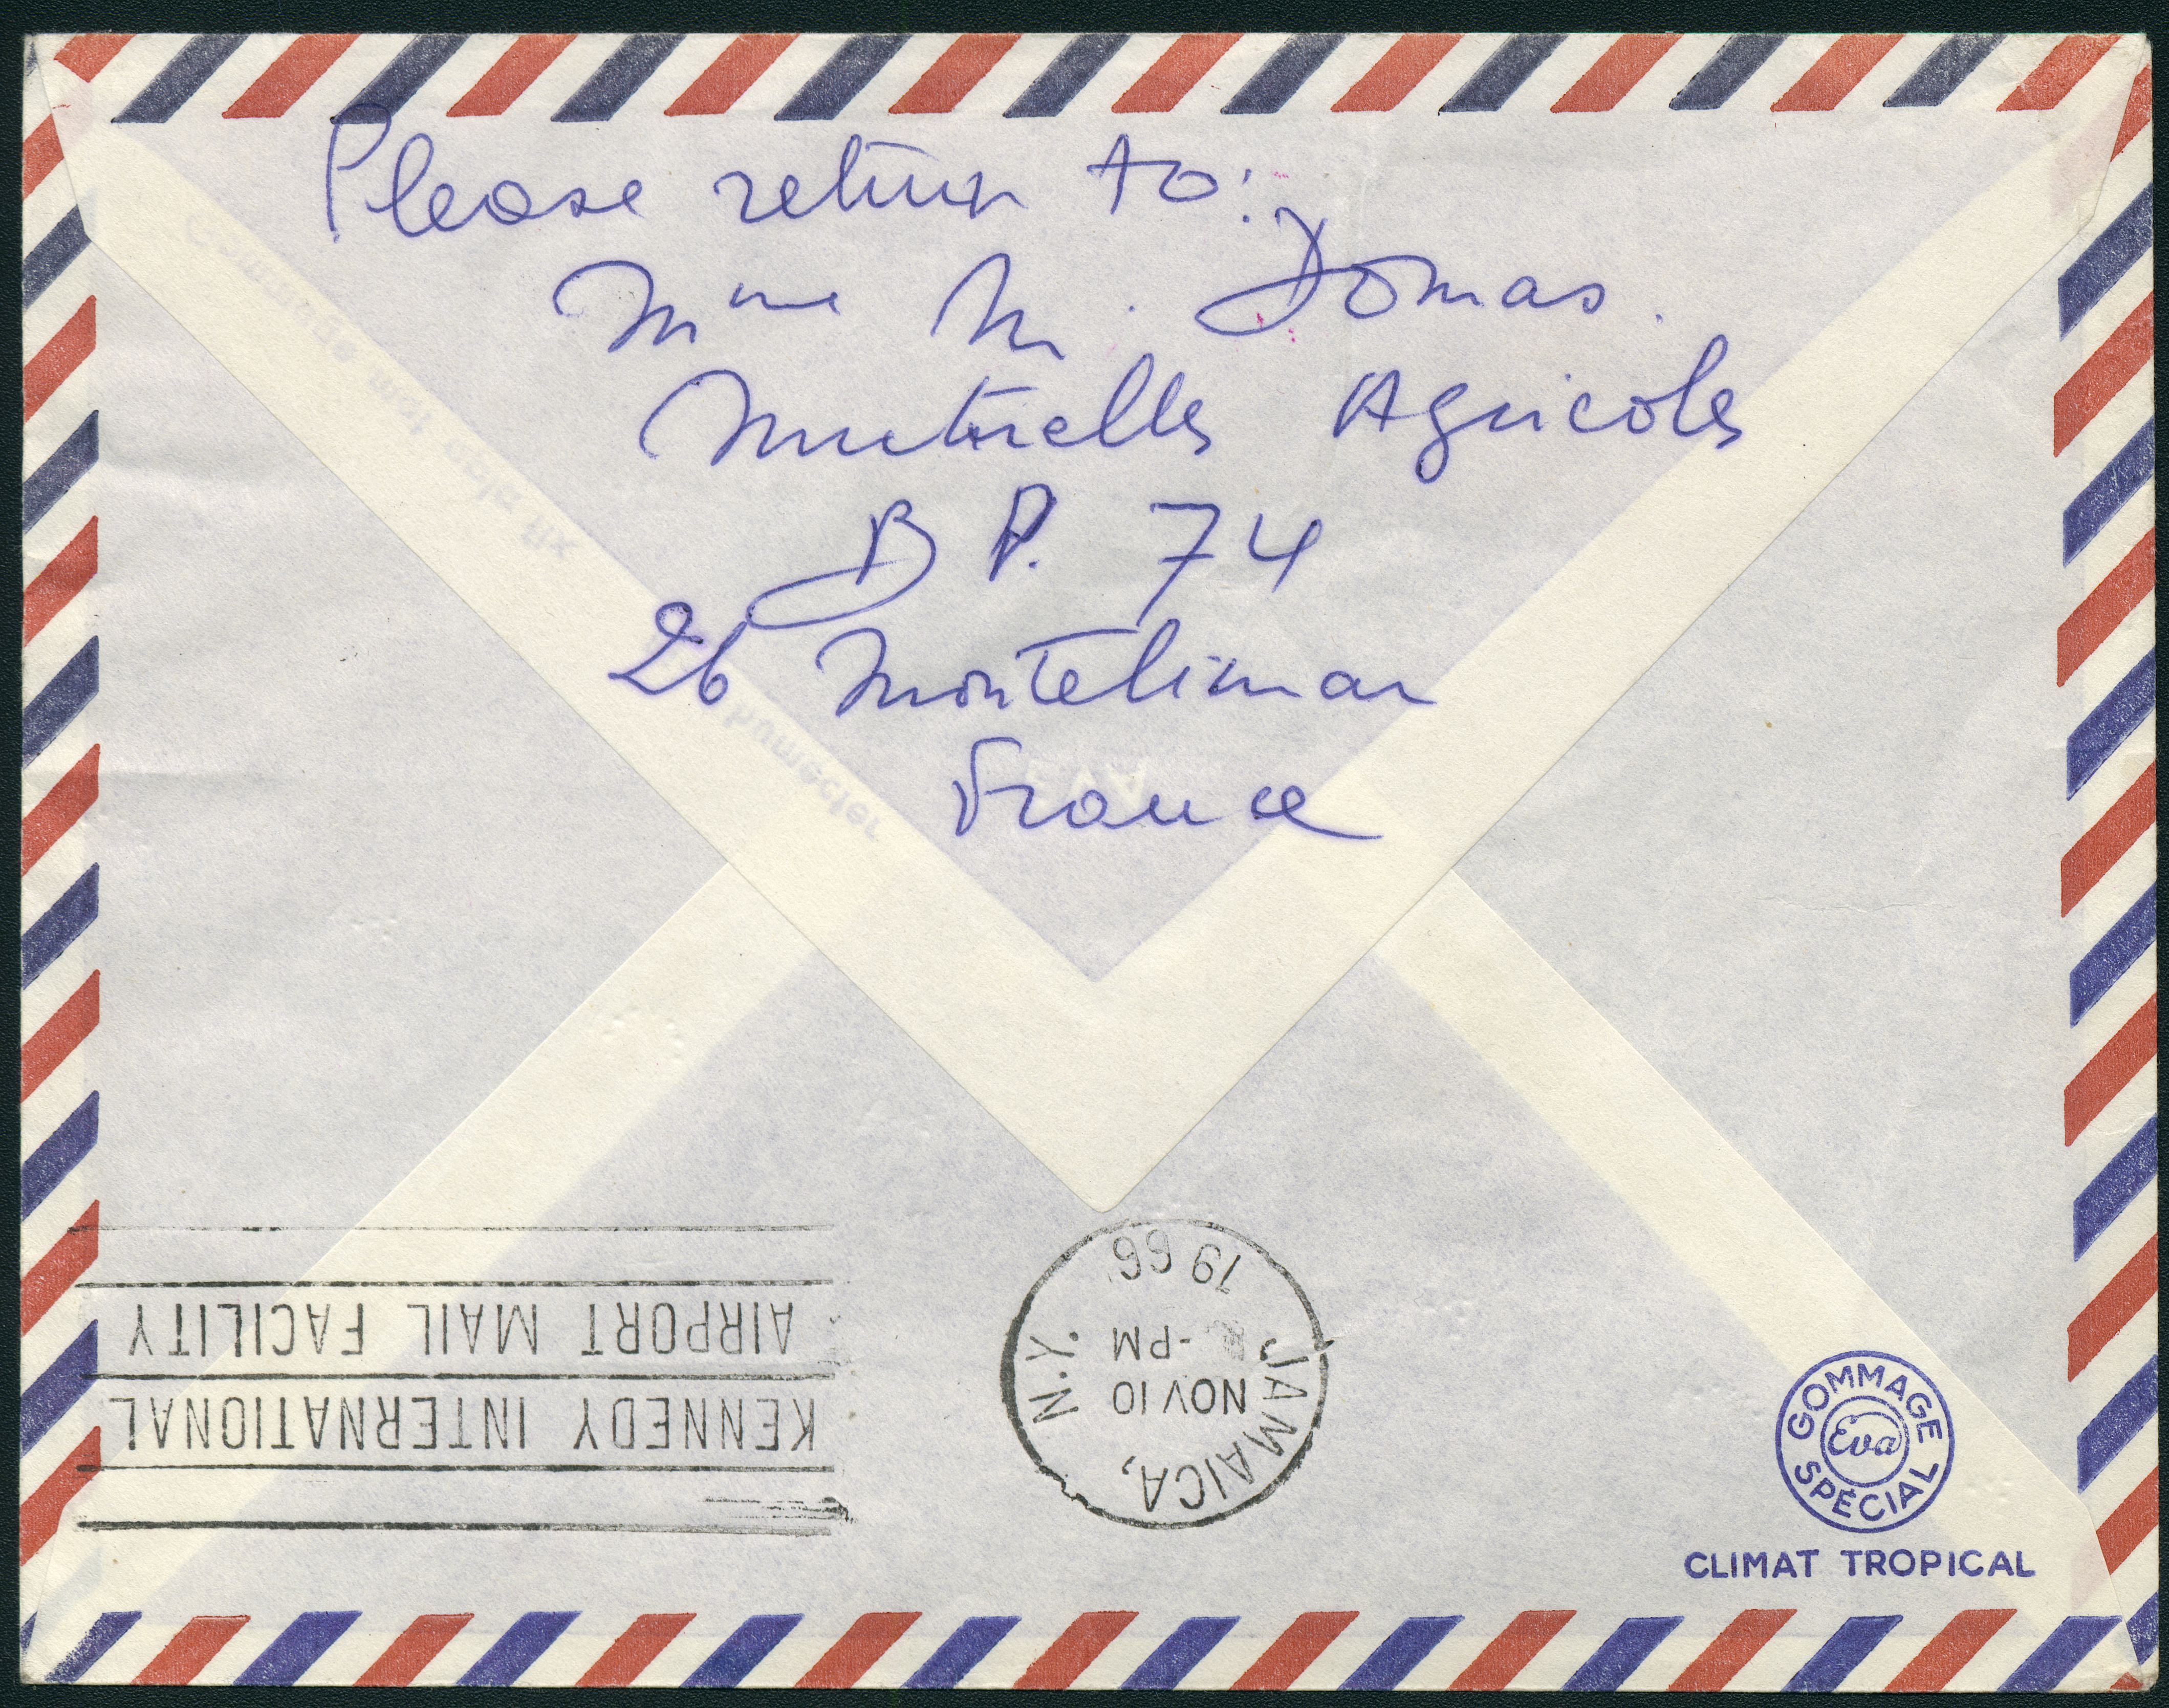 Please return to:
Mme M. Domas.
Mutuelles Agricoles
B P. 74
26 Montelimar
France
JAMAICA, N.Y.
NOV 10
-PM
1966
KENNEDY INTERNATIONAL
AIRPORT MAIL FACILITY
GOMMAGE
Eva
SPÉCIAL
CLIMAT TROPICAL